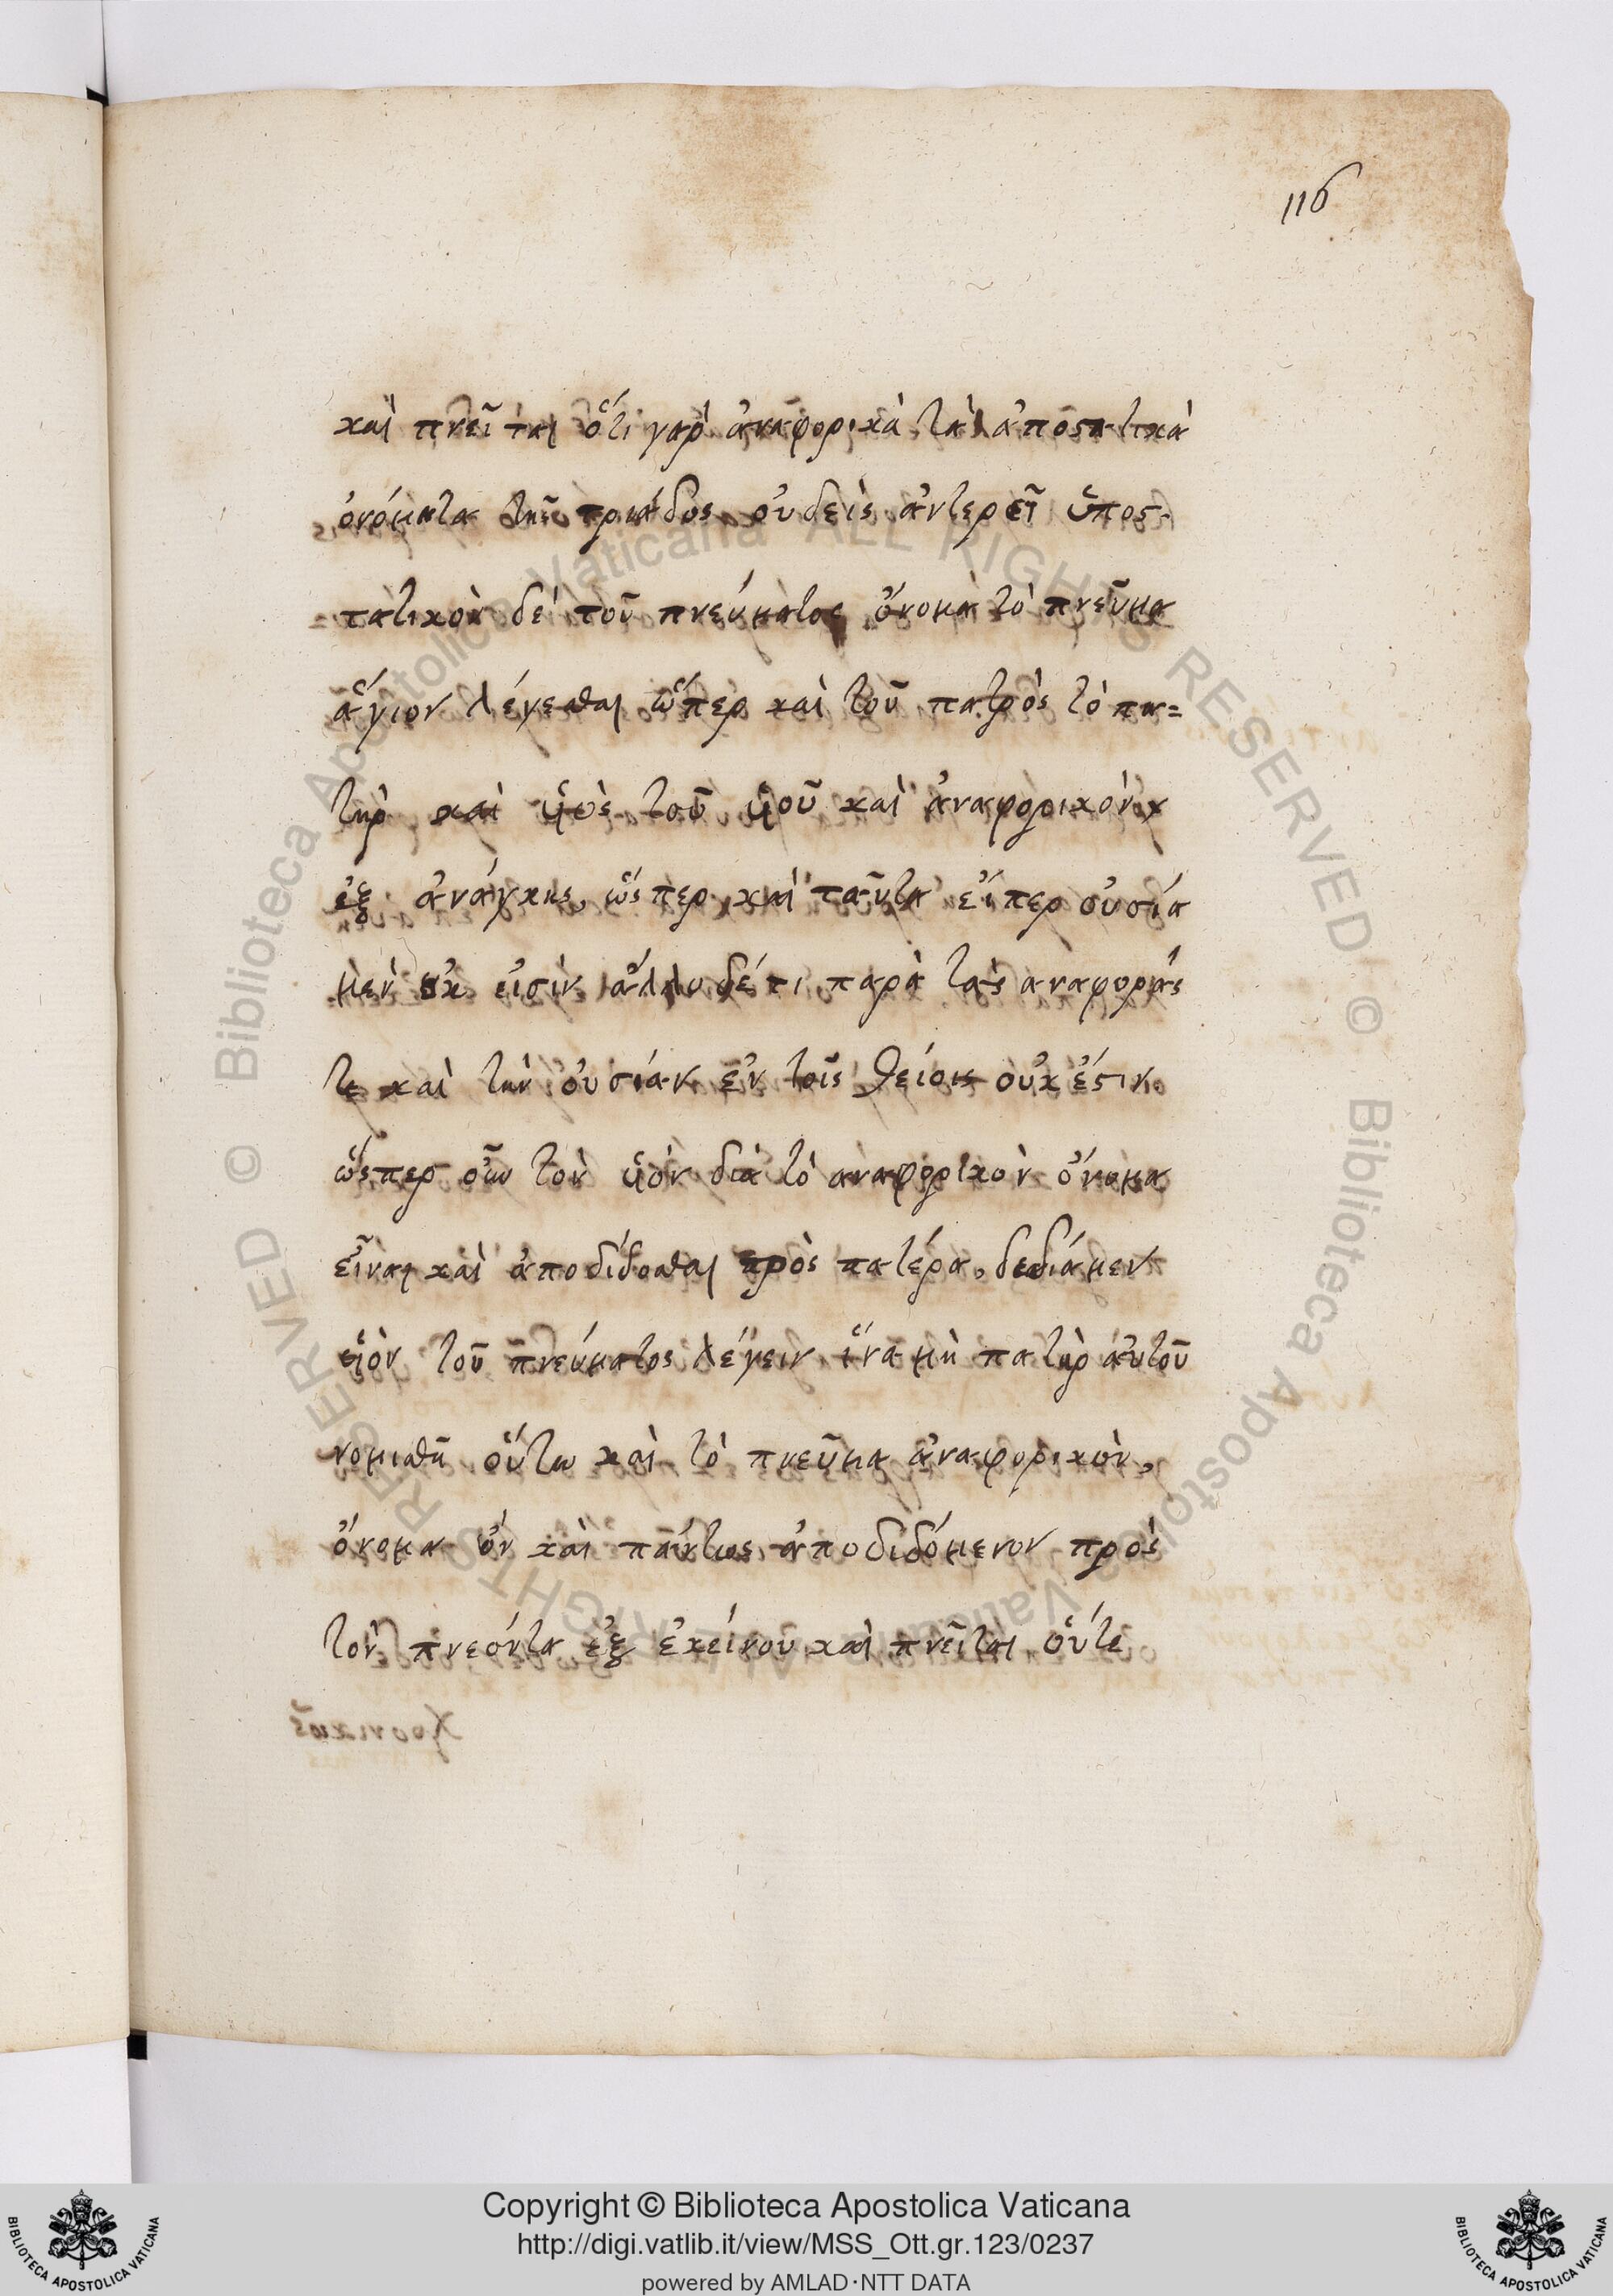 116
καὶ πνεῖται ὅτι γαρ ἀναφορικὰ τὰ ἀποστατικὰ
ὀνόματα τῆς τριάδος οὐδεὶς ἀντερεῖ ὑποσ-
τατικὸν δέ τοῦ πνεύματος ὄνομα τὸ πνεῦμα
ἅγιον λέγεσθαι ὥσπερ καὶ τοῦ πατρὸς τὸ πα=
τὴρ καὶ υἱὸς τοῦ υἱοῦ καὶ ἀναφορικόν
ἐξ ἀνάγκης, ὥσπερ καὶ ταῦτα εἴπερ οὐσία
μὲν οὐκ εἰσὶν ἄλλο δέ τι παρὰ τὰς αναφοράς
τε καὶ τὴν οὐσίαν ἐν τοῖς θείοις οὐκ ἔστιν.
ὥσπερ οὖν τὸν υἱόν διὰ τὸ αναφορικὸν ὄνομα
εἶναι καὶ ἀποδίδοσθαι πρὸς πατέρα, δεδίαμεν
υἱὸν τοῦ πνεύματος λέγειν ἵνα μὴ πατὴρ αὐτοῦ
νομισθῆ οὕτω καὶ τὸ πνεῦμα ἀναφορικὸν,
ὄνομα ὂν καὶ πάντως ἀποδιδόμενον πρὸς
τὸν πνεόντα ἐξ ἐκείνου καὶ πνεῖται οὔτε
Copyright © Biblioteca Apostolica Vaticana
http://digi.vatlib.it/view/MSS_Ott.gr.123/0237
powered by AMLAD·NTT DATA
BIBLIOTECA APOSTOLICA VATICANA
BIBLIOTECA APOSTOLICA VATICANA
© Biblioteca Apostolica Vaticana ALL RIGHTS RESERVED
© Biblioteca Apostolica Vaticana ALL RIGHTS RESERVED